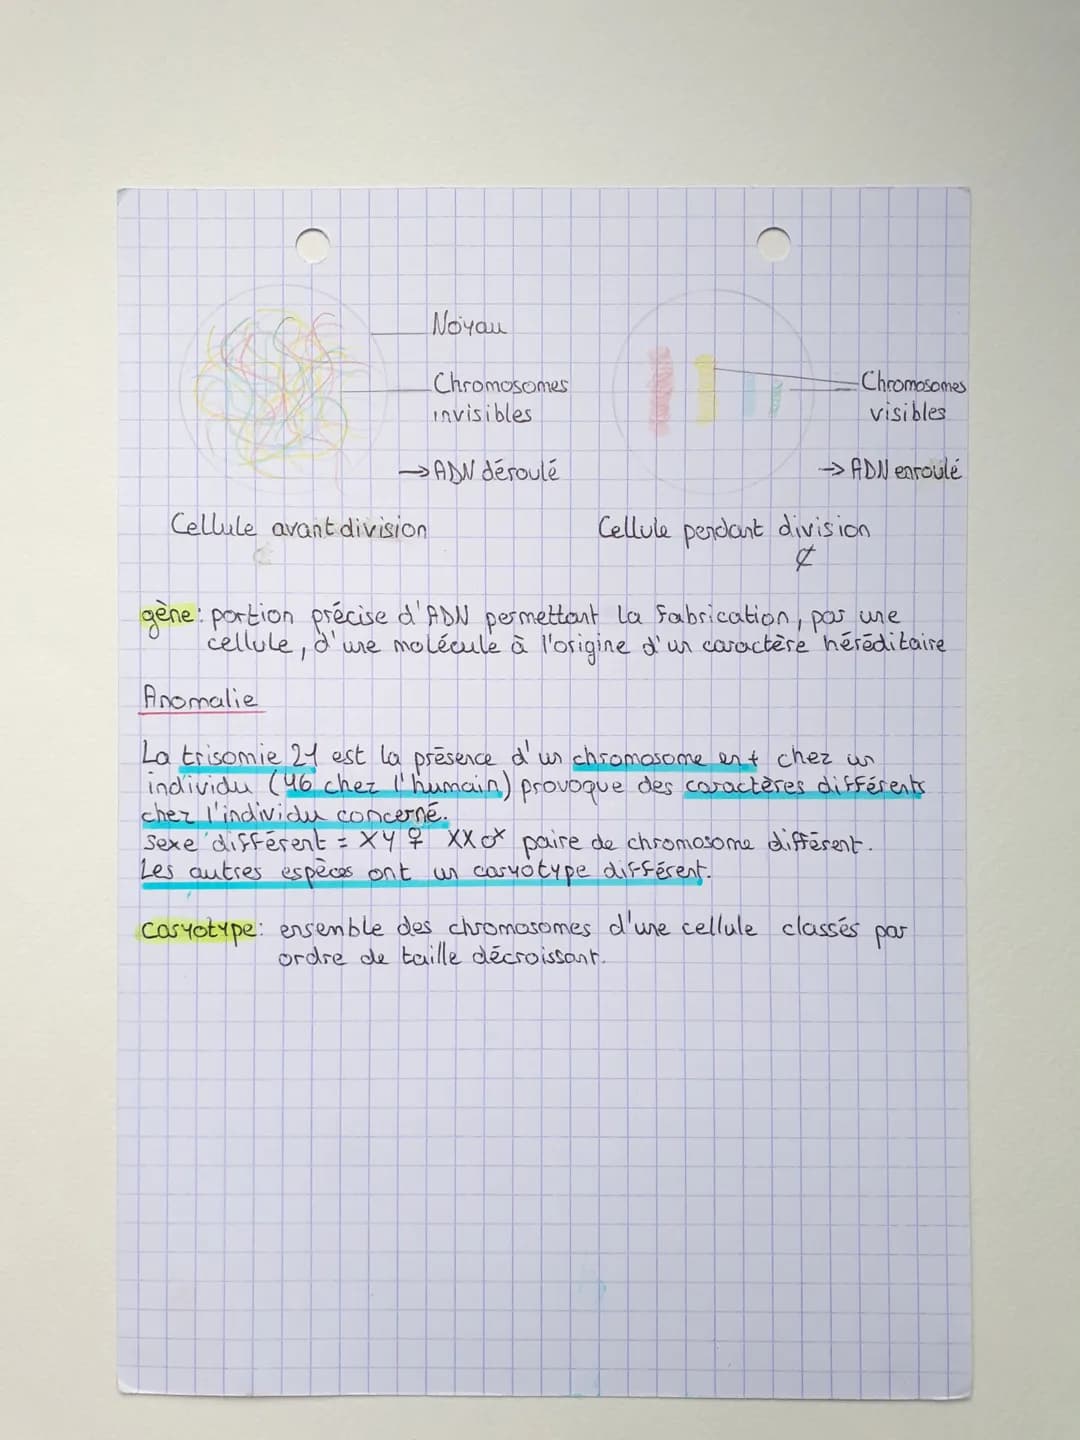 Noyau
Chromosomes
invisibles
→ ADN déroulé
Cellule avant division
Chromosomes
visibles
→ ADN enroulé
Cellule pendant division
gène : portion précise d'ADN permettant la fabrication, par une
cellule, d'une molécule à l'origine d'un caractère héréditaire
Anomalie
La trisomie 21 est la présence d'un chromosome en + chez un
individu (46 chez l'humain) provoque des caractères différents
chez l'individu concerné.
Sexe différent = XY ♀ XX ♂ paire de chromosome différent.
Les autres espèces ont un caryotype différent.
caryotype : ensemble des chromosomes d'une cellule classés par
ordre de taille décroissant.